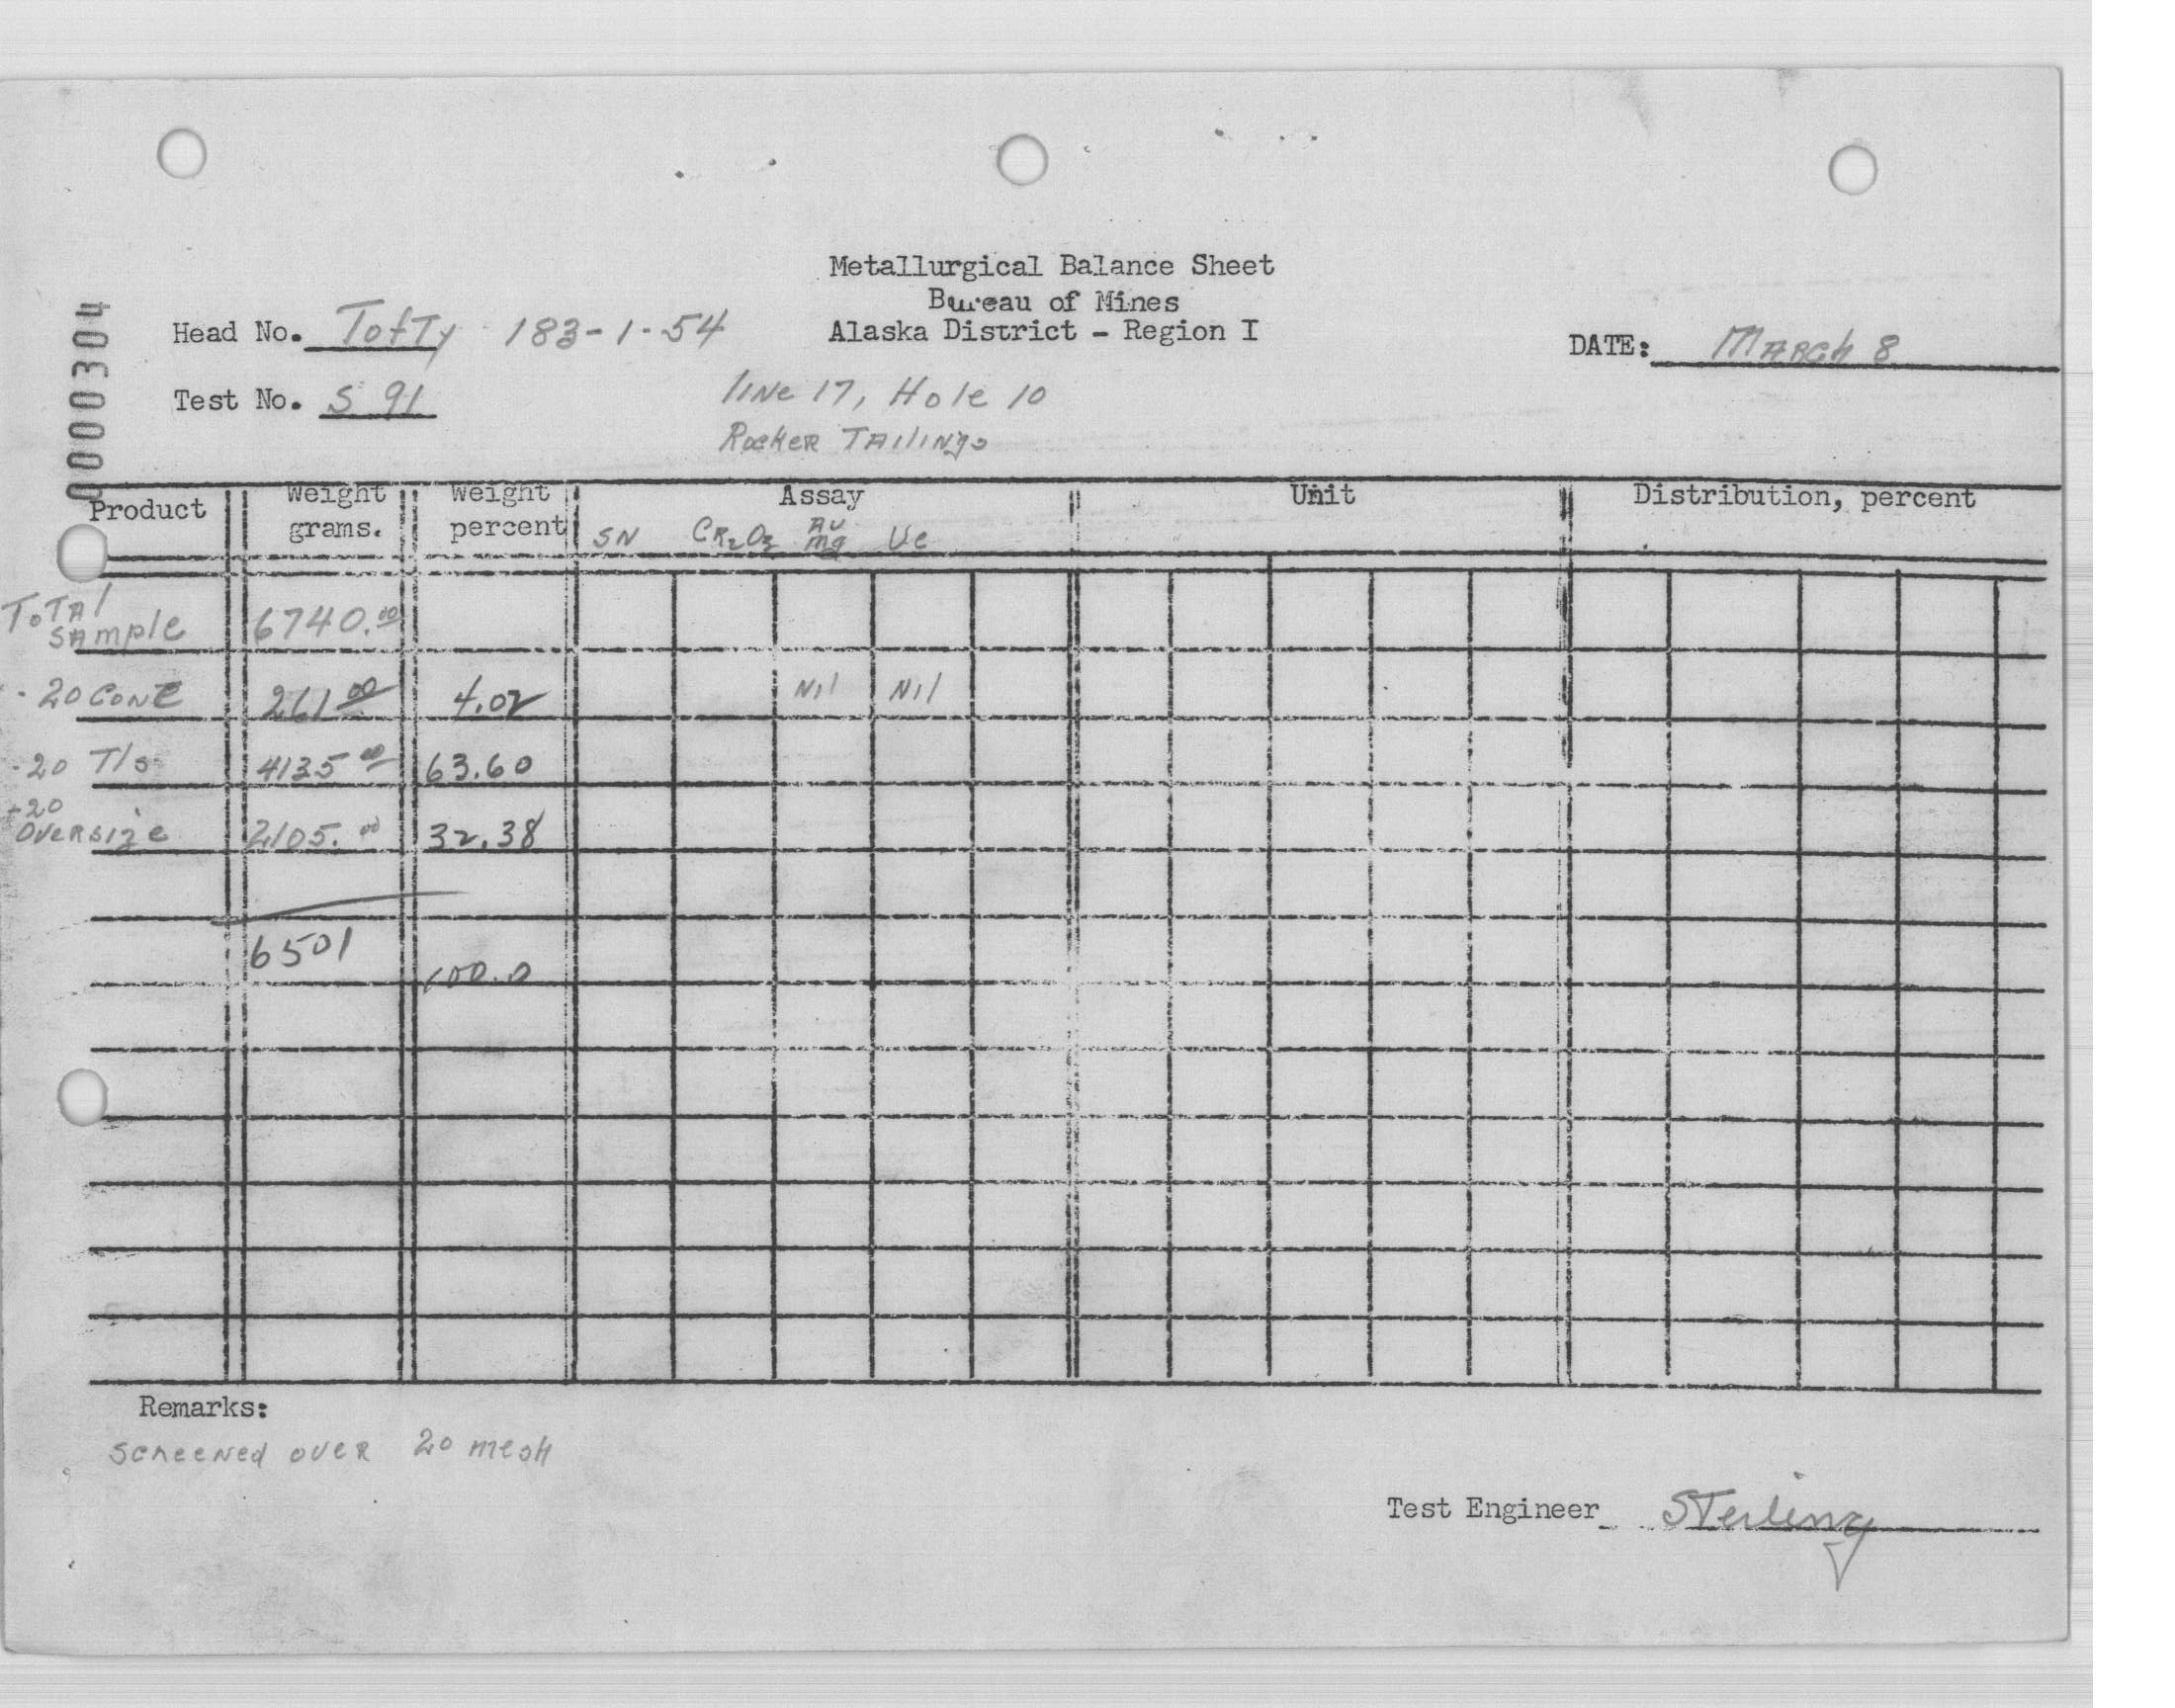 Metallurgical Balance Sheet
Bureau of Mines
Alaska District - Region I
0000304
Head No. Tofty 183-1-54
DATE: March 8
Test No. S 91
line 17, Hole 10
Rocker Tailings
Product Weight grams. Weight percent Assay Unit Distribution, percent
SN CR2O3 AU mg Ue
Total Sample 6740.00
-20 Conc 261 00 4.02 Nil Nil
-20 T/s 4135 00 63.60
+20 Oversize 2105. 00 32.38
6501 100.0
Remarks:
Screened over 20 mesh
Test Engineer Sterling